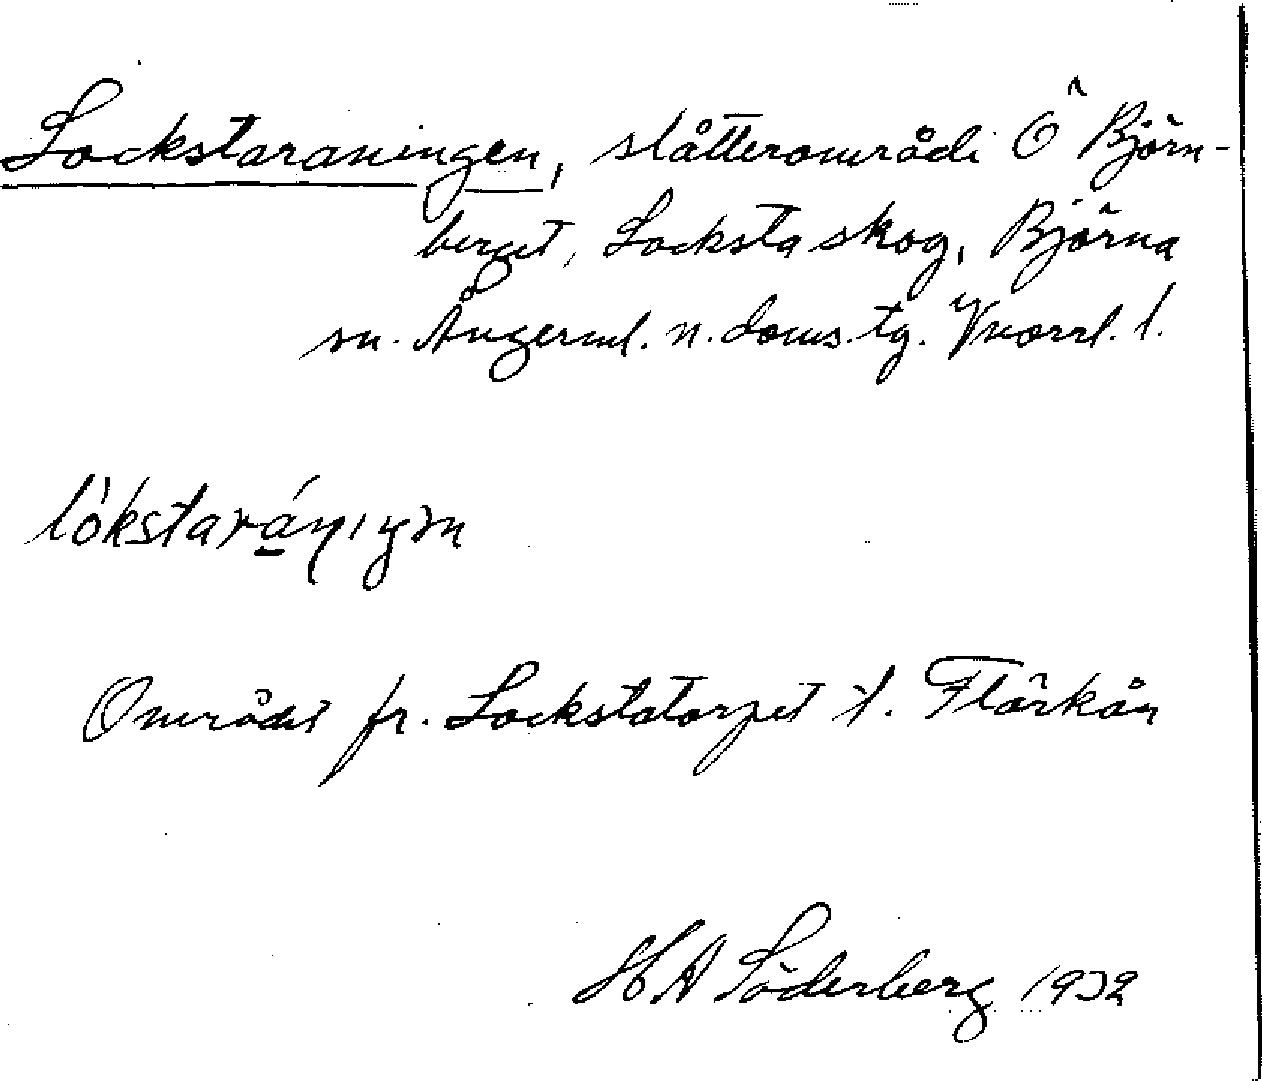 Lockstaraningen, slåtterområde Ö Björn-
berget, Locksta skog, Björna
sn. Ångerml. n. doms.tg. Vnorrl. l.
Området fr. Lockstatorpet t. Flärkån
H A Söderberg 1932